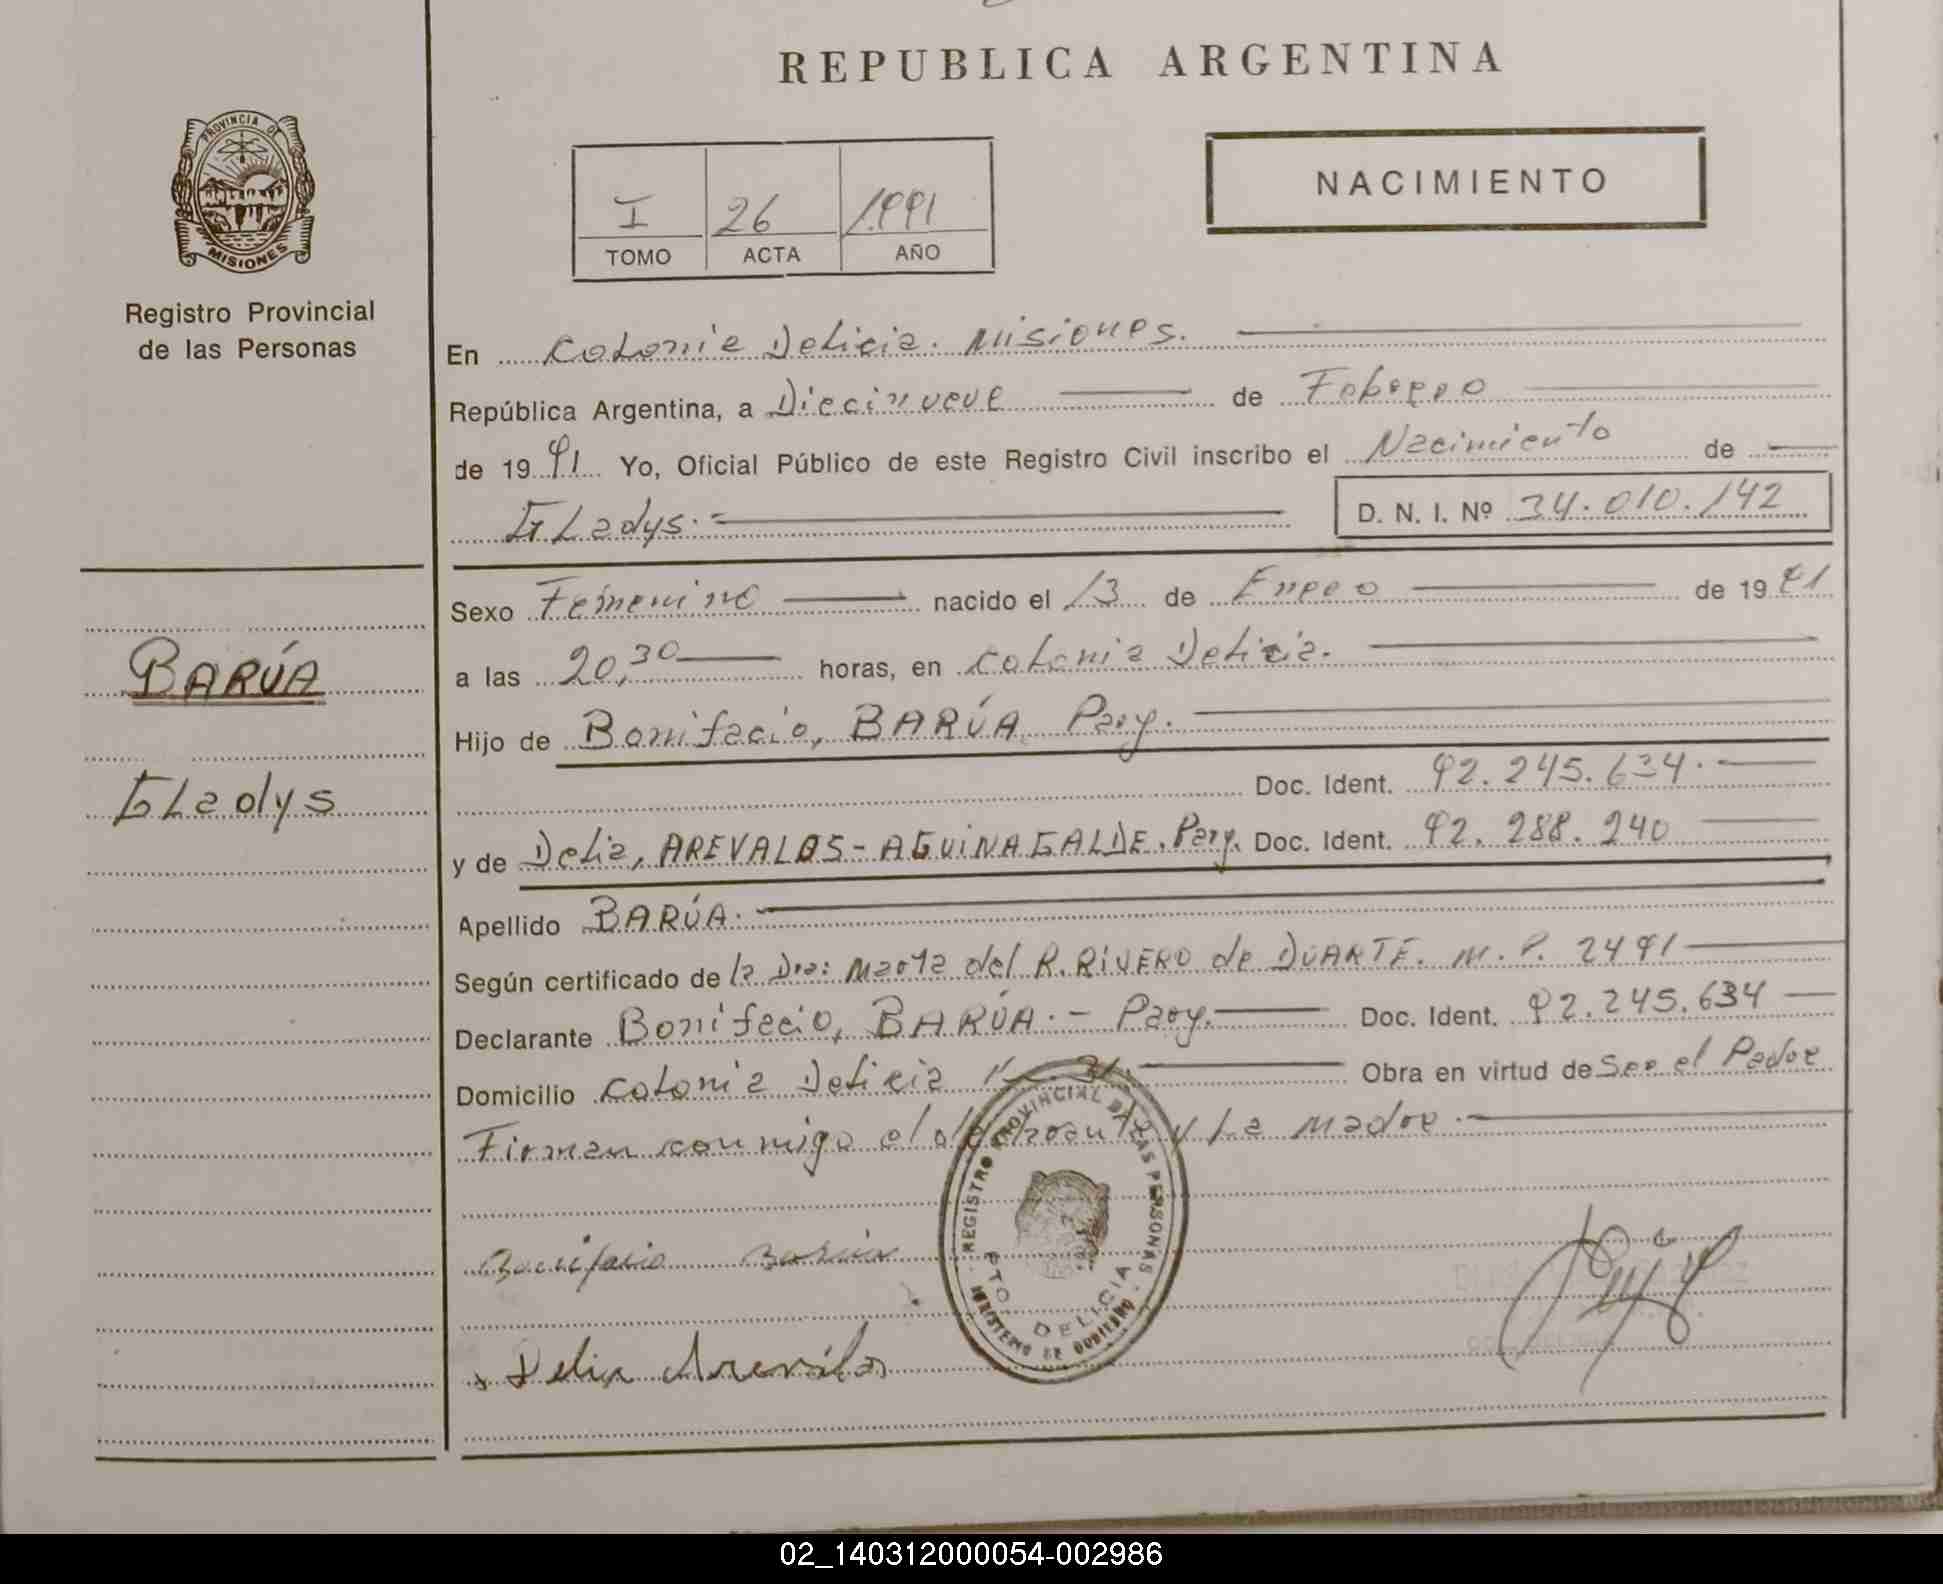 REPUBLICA ARGENTINA
PROVINCIA DE
MISIONES
Registro Provincial
de las Personas
I 26 1.991
TOMO ACTA AÑO
NACIMIENTO
En Colonia Delicia. Misiones.
República Argentina, a Diecinueve de Febrero
de 1991 Yo, Oficial Público de este Registro Civil inscribo el Nacimiento de
Gladys.
D. N. I. Nº 34.010.142
BARÚA
Gladys
Sexo Femenino nacido el 13 de Enero de 1981
a las 20,30 horas, en Colonia Delicia.
Hijo de Bonifacio, BARÚA Pary.
Doc. Ident. 92.245.634.
y de Delia, AREVALOS-AGUINAGALDE. Pary. Doc. Ident. 92.288.240
Apellido BARÚA.
Según certificado de la Dra: Marta del R. RIVERO de DUARTE. M.P. 2491
Declarante Bonifacio, BARÚA.- Pary. Doc. Ident. 92.245.634
Domicilio Colonia Delicia Obra en virtud de Ser el Padre
Firman conmigo el declarante y La Madre.
REGISTRO PROVINCIAL DE LAS PERSONAS
PTO. DELICIA
MINISTERIO DE GOBIERNO
Bonifacio Barúa
Delia Arevalos
02_140312000054-002986